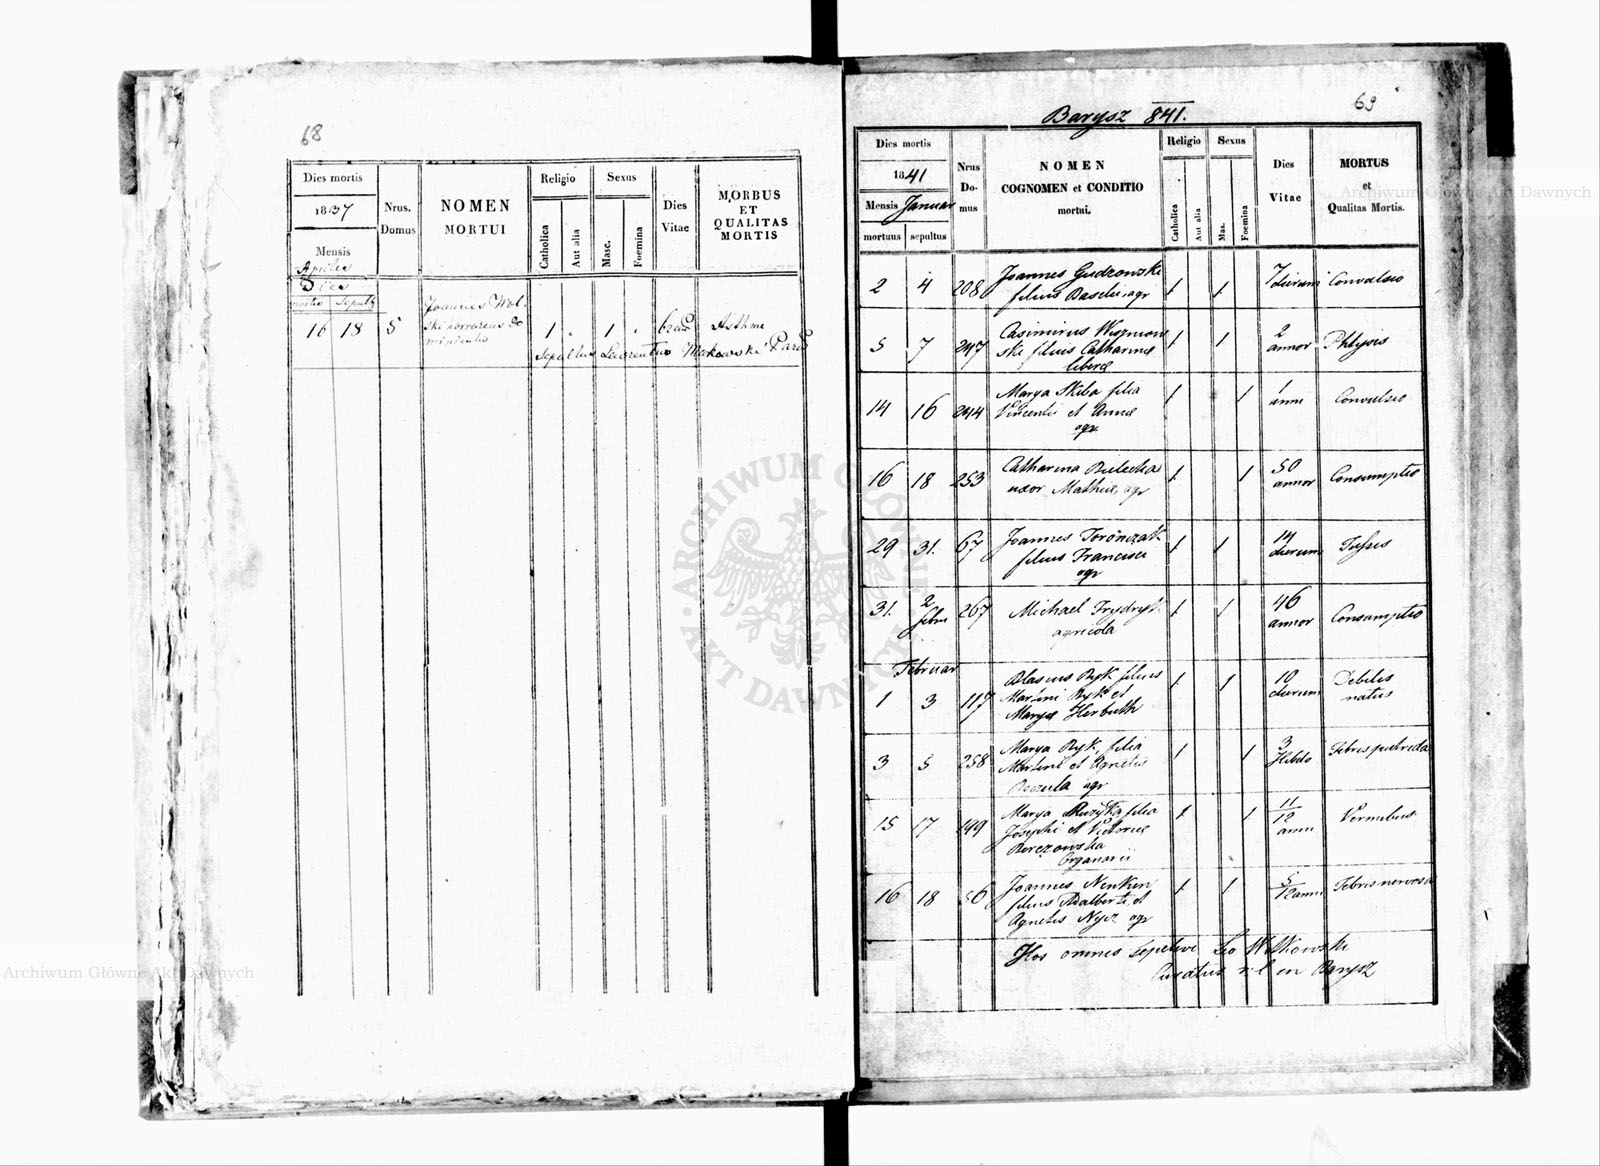 68
Dies mortis
1837
Mensis
Aprilis
Dies
mortis Sepult
Nrus.
Domus
NOMEN
MORTUI
Religio
Catholica
Aut alia
Sexus
Masc.
Foemina
Dies
Vitae
MORBUS
ET
QUALITAS
MORTIS
16 18 5 Joannes Wol-
ski
1 . 1 . Asthme
Sepultus Laurentius Makowski
63
Barysz 841.
Dies mortis
1841
Mensis Januar
mortuus sepultus
Nrus
Do-
mus
NOMEN
COGNOMEN et CONDITIO
mortui.
Religio
Catholica
Aut alia
Sexus
Mas.
Foemina
Dies
Vitae
MORTUS
et
Qualitas Mortis.
2 4 208 Joannes Gudzowski
filius Basilii agr
1 1 7 dierum Convulsio
5 7 247 Casimirus Wiszniow
ski filius Catharinae
liberae
1 1 2
annor Phtysis
14 16 244 Marya Skiba filia
Vincentii et Annae
agr
1 1 1
anni Convulsio
16 18 253 Catharina Bielecka
uxor Mathei, agr
1 1 50
annor Consumptio
29 31. 67 Joannes Torończak
filius Francisci
agr
1 1 14
dierum Tussis
31. 2
febru 267 Michael Frydryk
agricola
1 1 46
annor Consumptio
Februar
1 3 117 Blasius Ryk filius
Martini Ryk et
Marya Herbuth
1 1 10
dierum Debilis
natus
3 5 258 Marya Ryk, filia
Martini et Agnetis
agr
1 1 3
Hebdo Febris putrida
15 17 149 Marya Ruzyska filia
Josephi et Victoriae
Berezowska
Organarii
1 1 11
12
anni Vermibus
16 18 56 Joannes Nenken
filius Adalberti et
Agnetis Nycz agr
1 1 5
12 anni Febris nervosa
Hos omnes sepelivi Leo Witkowski
Curatus r. l. in Barysz
ARCHIWUM GŁÓWNE
AKT DAWNYCH
Archiwum Główne Akt Dawnych
Archiwum Główne Akt Dawnych